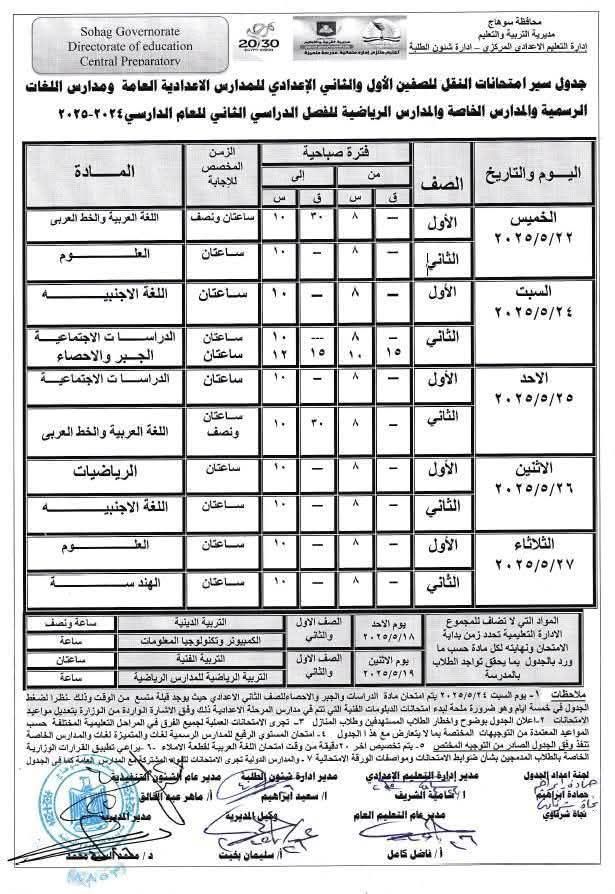 محافظة سوهاج
مديرية التربية والتعليم
إدارة التعليم الاعدادي المركزي - ادارة شئون الطلبة
20/30
Sohag Governorate
Directorate of education
Central Preparatory
جدول سير امتحانات النقل للصفين الأول والثاني الإعدادي للمدارس الاعدادية العامة ومدارس اللغات
الرسمية والمدارس الخاصة والمدارس الرياضية للفصل الدراسي الثاني للعام الدارسي ٢٠٢٤-٢٠٢٥
اليوم والتاريخ الصف فترة صباحية الزمن المخصص للإجابة المـــادة
من إلى
ق س ق س
الخميس ٢٠٢٥/٥/٢٢ الأول — ٨ ٣٠ ١٠ ساعتان ونصف اللغة العربية والخط العربى
الثاني — ٨ — ١٠ ساعتان العلـــوم
السبت ٢٠٢٥/٥/٢٤ الأول — ٨ — ١٠ ساعتان اللغة الاجنبيـــه
الثاني — ٨ --- ١٠ ساعتان الدراسـات الاجتماعية
١٥ ١٠ ١٥ ١٢ ساعتان الجبر والاحصاء
الاحد ٢٠٢٥/٥/٢٥ الأول — ٨ – ١٠ ساعتان الدراسـات الاجتماعية
الثاني — ٨ ٣٠ ١٠ ساعتان ونصف اللغة العربية والخط العربى
الاثنين ٢٠٢٥/٥/٢٦ الأول — ٨ — ١٠ ساعتان الرياضيات
الثاني — ٨ — ١٠ ساعتان اللغة الاجنبيـــه
الثلاثاء ٢٠٢٥/٥/٢٧ الأول — ٨ — ١٠ ساعتان العلـــوم
الثاني — ٨ — ١٠ ساعتان الهند ســـة
المواد التي لا تضاف للمجموع
الادارة التعليمية تحدد زمن بداية
الامتحان ونهايته لكل مادة حسب ما
ورد بالجدول بما يحقق تواجد الطلاب
بالمدرسة
يوم الاحد ٢٠٢٥/٥/١٨ الصف الاول والثاني التربية الدينية ساعة ونصف
الكمبيوتر وتكنولوجيا المعلومات ساعة
يوم الاثنين ٢٠٢٥/٥/١٩ الصف الاول والثاني التربية الفنية ساعتان
التربية الرياضية للمدارس الرياضية ساعة
ملاحظات ١- يوم السبت ٢٠٢٥/٥/٢٤ يتم امتحان مادة الدراسات والجبر والاحصاء للصف الثاني الاعدادي حيث يوجد قيلة متسع من الوقت وذلك نظرا لضغط
الجدول في خمسة ايام وهو ضرورة ملحة لبدء امتحانات الدبلومات الفنية التي تتم في مدارس المرحلة الاعدادية وذلك وفق الاشارة الواردة من الوزارة بتعديل مواعيد
الامتحانات ٢-اعلان الجدول بوضوح واخطار الطلاب المستهدفين وطلاب المنازل ٣- تجرى الامتحانات العملية لجميع الفرق في المراحل التعليمية المختلفة حسب
المواعيد المعتمدة من التوجيهات المختصة بما لا يتعارض مع هذا الجدول ٤- امتحان المستوى الرفيع للمدارس الرسمية لغات والمتميزة لغات والمدارس الخاصة
تنفذ وفق الجدول الصادر من التوجيه المختص ٥- يتم تخصيص اخر ٢٠دقيقة من وقت امتحان اللغة العربية لقطعة الاملاء ٦-يراعي تطبيق القرارات الوزارية
الخاصة بالطلاب المدمجين بشأن ضوابط الامتحانات ومواصفات الورقة الامتحانية ٧- والمدارس الدولية تجرى امتحانات للمواد المشتركة مع المدارس العامة كما في الجدول
لجنة اعداد الجدول مدير إدارة التعليم الإعدادي مدير ادارة شئون الطلبة مدير عام الشئون التنفيذية
حمادة ابراهيم أ/ شامية الشريف أ/ سعيد ابراهيم أ/ ماهر عبد الخالق
نجاة شرقاوي مدير عام التعليم العام وكيل المديرية مدير المديرية
أ/ فاضل كامل أ/ سليمان بخيت د / محمد السيد محمد